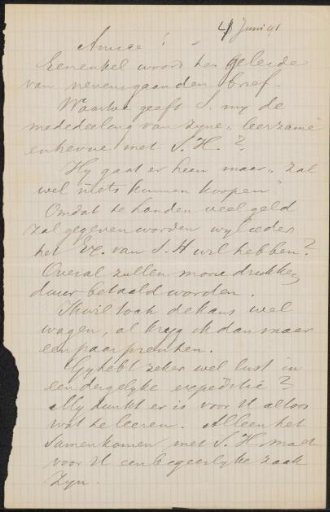 4 Juni 91
Amice! -
Eenenkel woord ten geleide
van nevensgaanden brief.
Waartoe geeft S. my de
mededeeling van zyne, leerzame
enhevue met S. H.?
Hy gaat er heen maar, zal
wel niets kunnen koopen
Omdat te Londen veel geld
zal gegeven worden wyl ieder
het Ex. van S. H wil hebben?
Overal zullen mooie drukken
duur betaald worden.
Ik wil toch de kans wel
wagen, al kryg ik dan maar
een paar prenten.
Gy hebt zeker wel lust in
een dergelyke expeditie?
My dunkt er is voor U altoos
wat te leeren. Alleen het
samenkomen met S. H. moet
voor U een begeerlyke zaak
zyn.